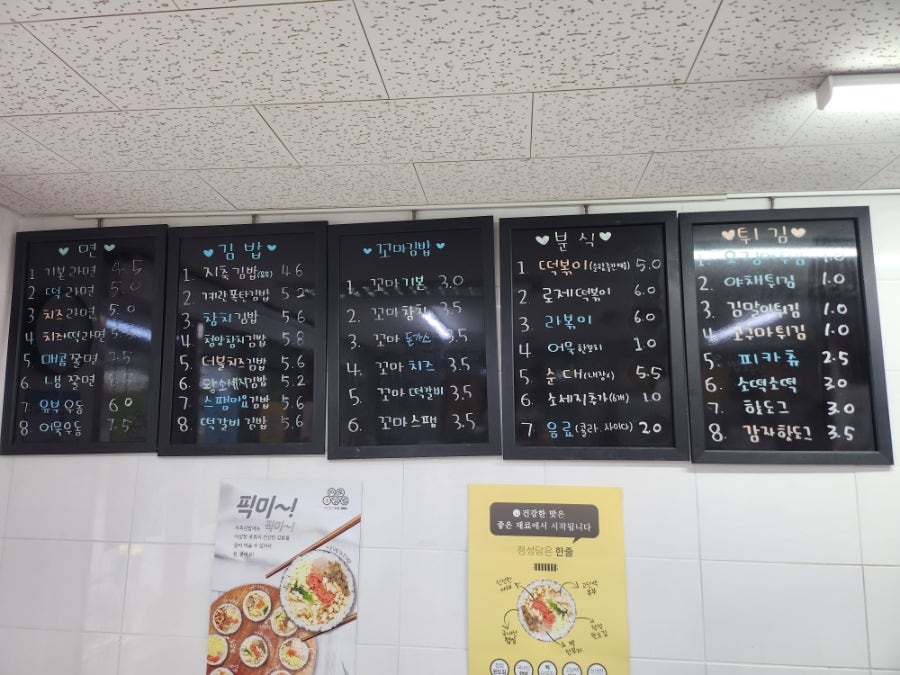 면
1 기본라면 4.5
2 떡라면 5.0
3 치즈라면 5.0
4 치즈떡라면 5.5
5 매콤쫄면
6 냉쫄면
7 유부우동 6.0
8 어묵우동 7.5
김밥
1. 지축김밥 4.6
2. 계란폭탄김밥 5.2
3. 참치김밥 5.6
4. 청양참치김밥 5.8
5. 더블치즈김밥 5.6
6. 왕소세지김밥 5.2
7. 스팸마요김밥 5.6
8. 떡갈비김밥 5.6
꼬마김밥
1. 꼬마기본 3.0
2. 꼬마참치 3.5
3. 꼬마돈까스 3.5
4. 꼬마치즈 3.5
5. 꼬마떡갈비 3.5
6. 꼬마스팸 3.5
분식
1. 떡볶이 5.0
2. 로제떡볶이 6.0
3. 라볶이 6.0
4. 어묵 1.0
5. 순대(내장X) 5.5
6. 소세지추가(6개) 1.0
7. 음료(콜라. 사이다) 2.0
튀김
1.0
2. 야채튀김 1.0
3. 김말이튀김 1.0
4. 고구마튀김 1.0
5. 피카츄 2.5
6. 소떡소떡 3.0
7. 핫도그 3.0
8. 감자핫도그 3.5
픽미~!
건강한 맛은
좋은 재료에서 시작됩니다
정성담은 한줄